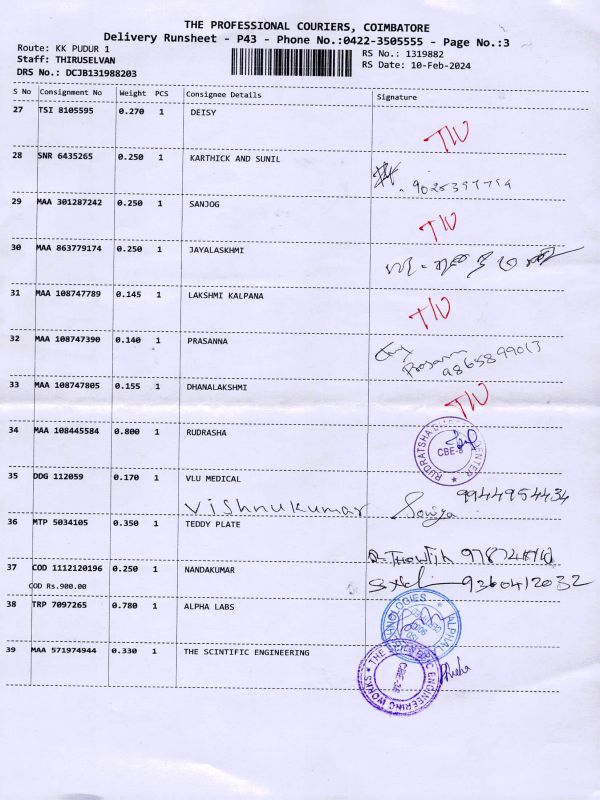 THE PROFESSIONAL COURIERS, COIMBATORE
Delivery Runsheet - P43 - Phone No.:0422-3505555 - Page No.:3
Route: KK PUDUR 1
RS No.: 1319882
Staff: THIRUSELVAN
RS Date: 10-Feb-2024
DRS No.: DCJB131988203
S No Consignment No Weight PCS Consignee Details Signature
27 TSI 8105595 0.270 1 DEISY
28 SNR 6435265 0.250 1 KARTHICK AND SUNIL
29 MAA 301287242 0.250 1 SANJOG
30 MAA 863779174 0.250 1 JAYALASKHMI
31 MAA 108747789 0.145 1 LAKSHMI KALPANA
32 MAA 108747390 0.140 1 PRASANNA
Prasanna
9865899013
33 MAA 108747805 0.155 1 DHANALAKSHMI
34 MAA 108445584 0.800 1 RUDRASHA
CBE-8
35 DDG 112059 0.170 1 VLU MEDICAL
Vishnukumar Soniya 9944954434
36 MTP 5034105 0.350 1 TEDDY PLATE
37 COD 1112120196 0.250 1 NANDAKUMAR
9360412032
COD Rs.900.00
38 TRP 7097265 0.780 1 ALPHA LABS
39 MAA 571974944 0.330 1 THE SCINTIFIC ENGINEERING
THE SCIENTIFIC ENGINEERING WORKS